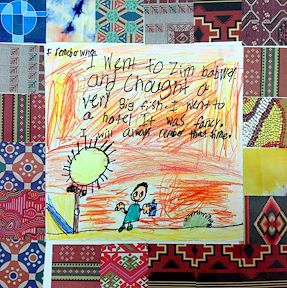 I rember when
I went to Zimbabwe
and Chaught a
very Big fish. I went to
a hotel It was fancy.
I will always rember that time.